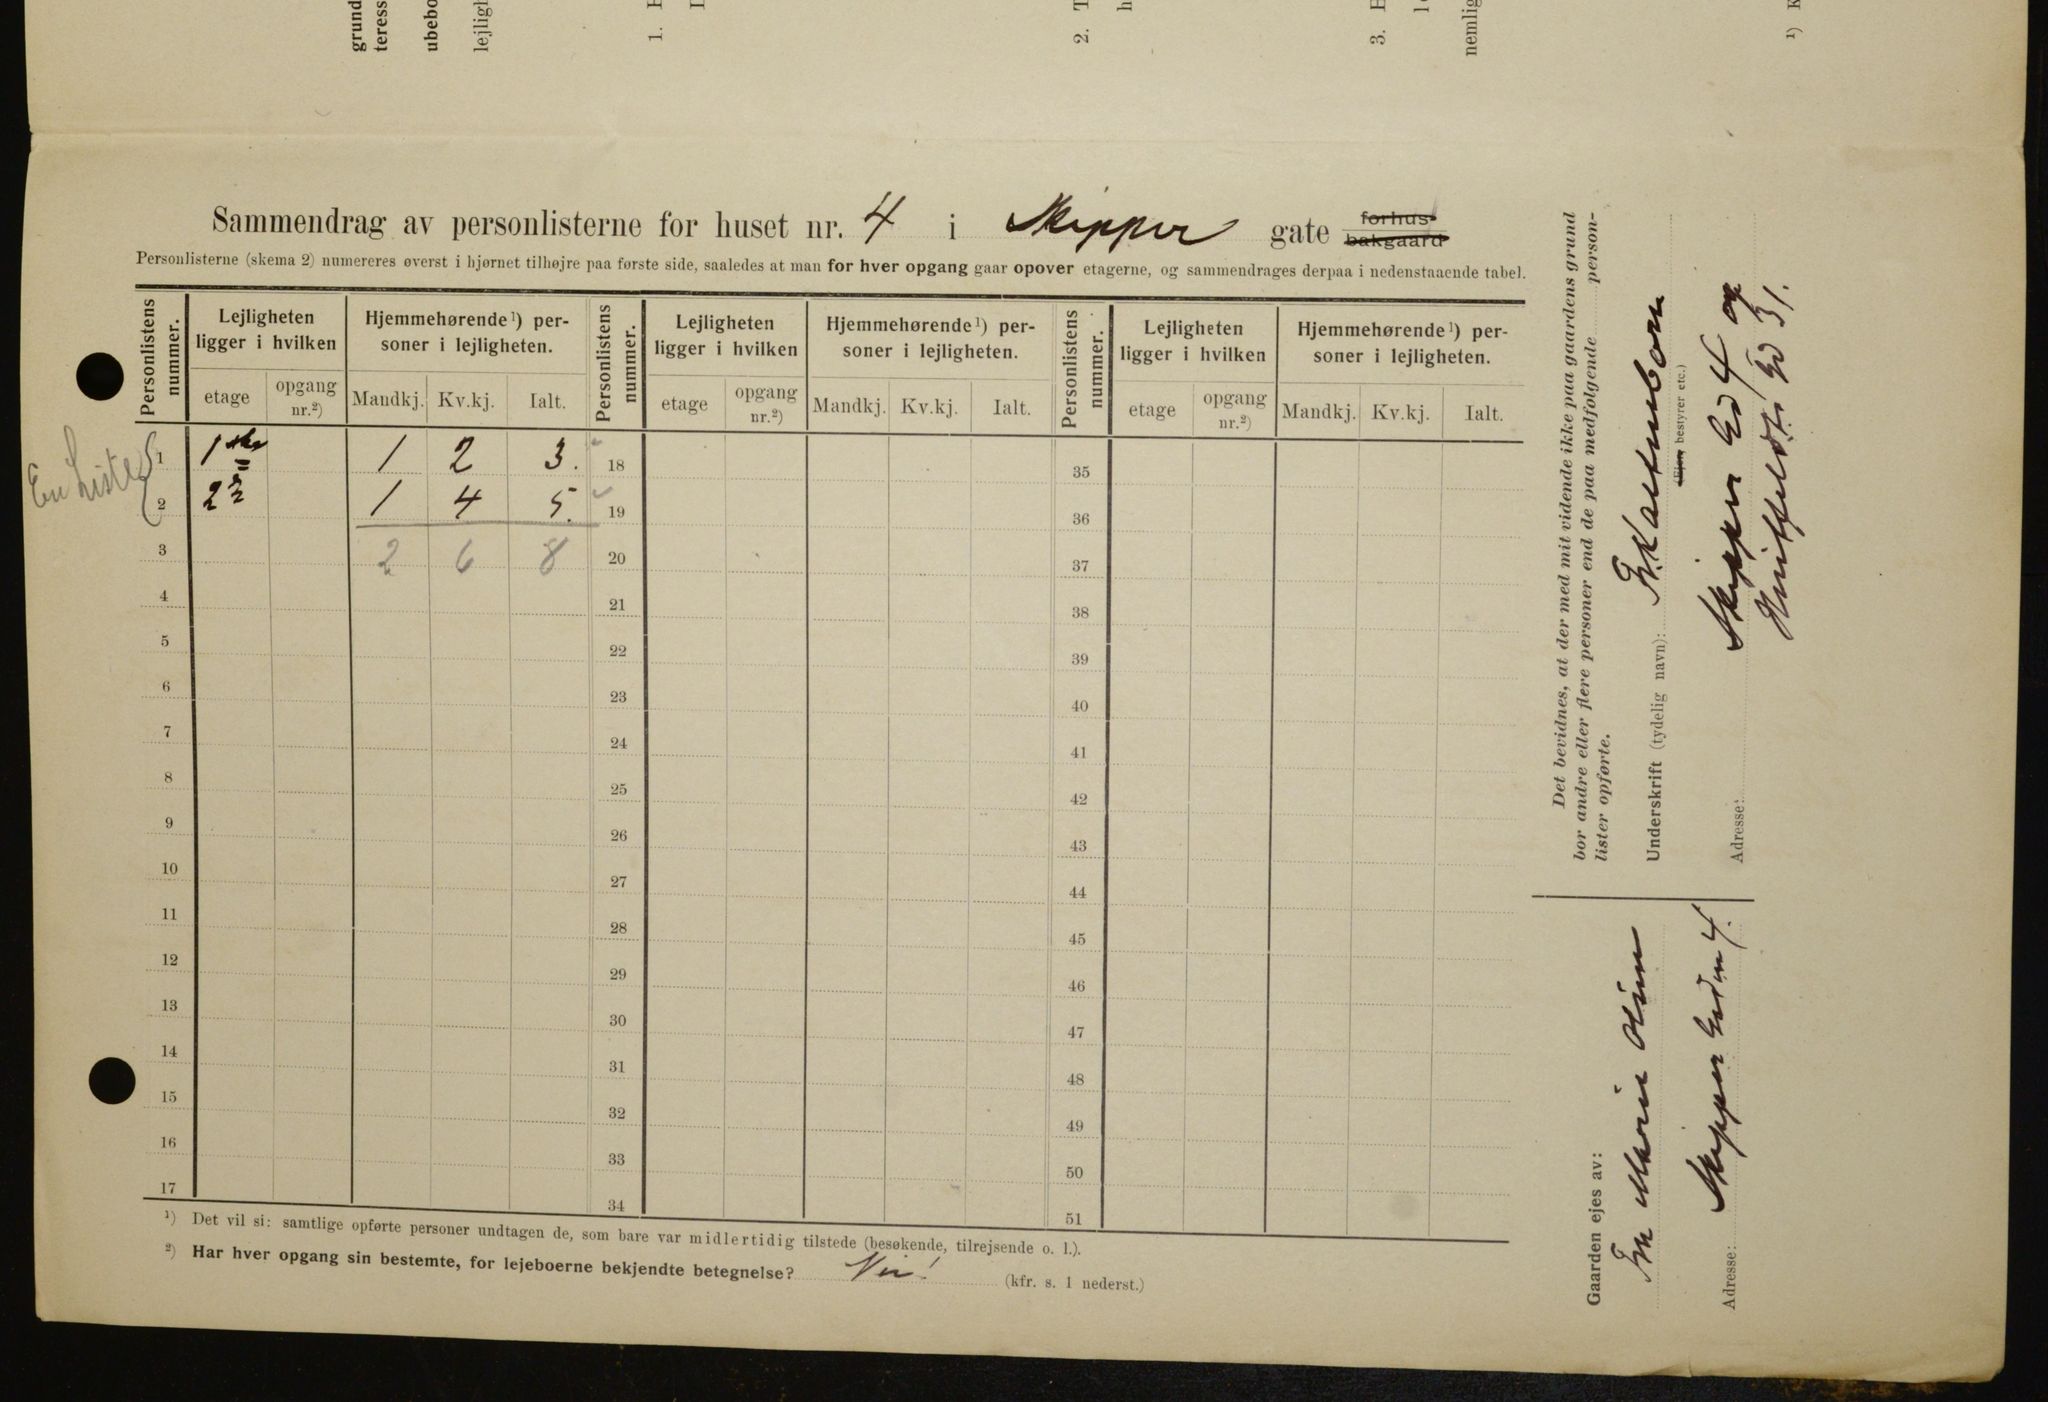 grund
teress
ubebo
lejligh
1.
2. T
h
3.
1
nemlig
¹) K
Sammendrag av personlisterne for huset nr. 4 i Skipper gate forhus bakgaard
Personlisterne (skema 2) numereres øverst i hjørnet tilhøjre paa første side, saaledes at man for hver opgang gaar opover etagerne, og sammendrages derpaa i nedenstaaende tabel.
Personlistens nummer.
Lejligheten ligger i hvilken
etage
opgang nr.²)
Hjemmehørende¹) per-
soner i lejligheten.
Mandkj. Kv.kj. Ialt.
Personlistens nummer.
Lejligheten ligger i hvilken
etage
opgang nr.²)
Hjemmehørende¹) per-
soner i lejligheten.
Mandkj. Kv.kj. Ialt.
Personlistens nummer.
Lejligheten ligger i hvilken
etage
opgang nr.²)
Hjemmehørende¹) per-
soner i lejligheten.
Mandkj. Kv.kj. Ialt.
En Liste
1 1ste 1 2 3. 18 35
2 2 1 4 5. 19 36
3 2 6 8 20 37
4 21 38
5 22 39
6 23 40
7 24 41
8 25 42
9 26 43
10 27 44
11 28 45
12 29 46
13 30 47
14 31 48
15 32 49
16 33 50
17 34 51
¹) Det vil si: samtlige opførte personer undtagen de, som bare var midlertidig tilstede (besøkende, tilrejsende o. l.).
²) Har hver opgang sin bestemte, for lejeboerne bekjendte betegnelse? Nei! (kfr. s. 1 nederst.)
Det bevidnes, at der med mit vidende ikke paa gaardens grund
bor andre eller flere personer end de paa medfølgende person-
lister opførte.
Underskrift (tydelig navn): Kaltenborn
(Ejer, bestyrer etc.)
Adresse: Skipper Gd 4 og
Huitfeldts Gd 31.
Gaarden ejes av:
Fru Marie Olsen
Adresse: Skipper Gaden 4.